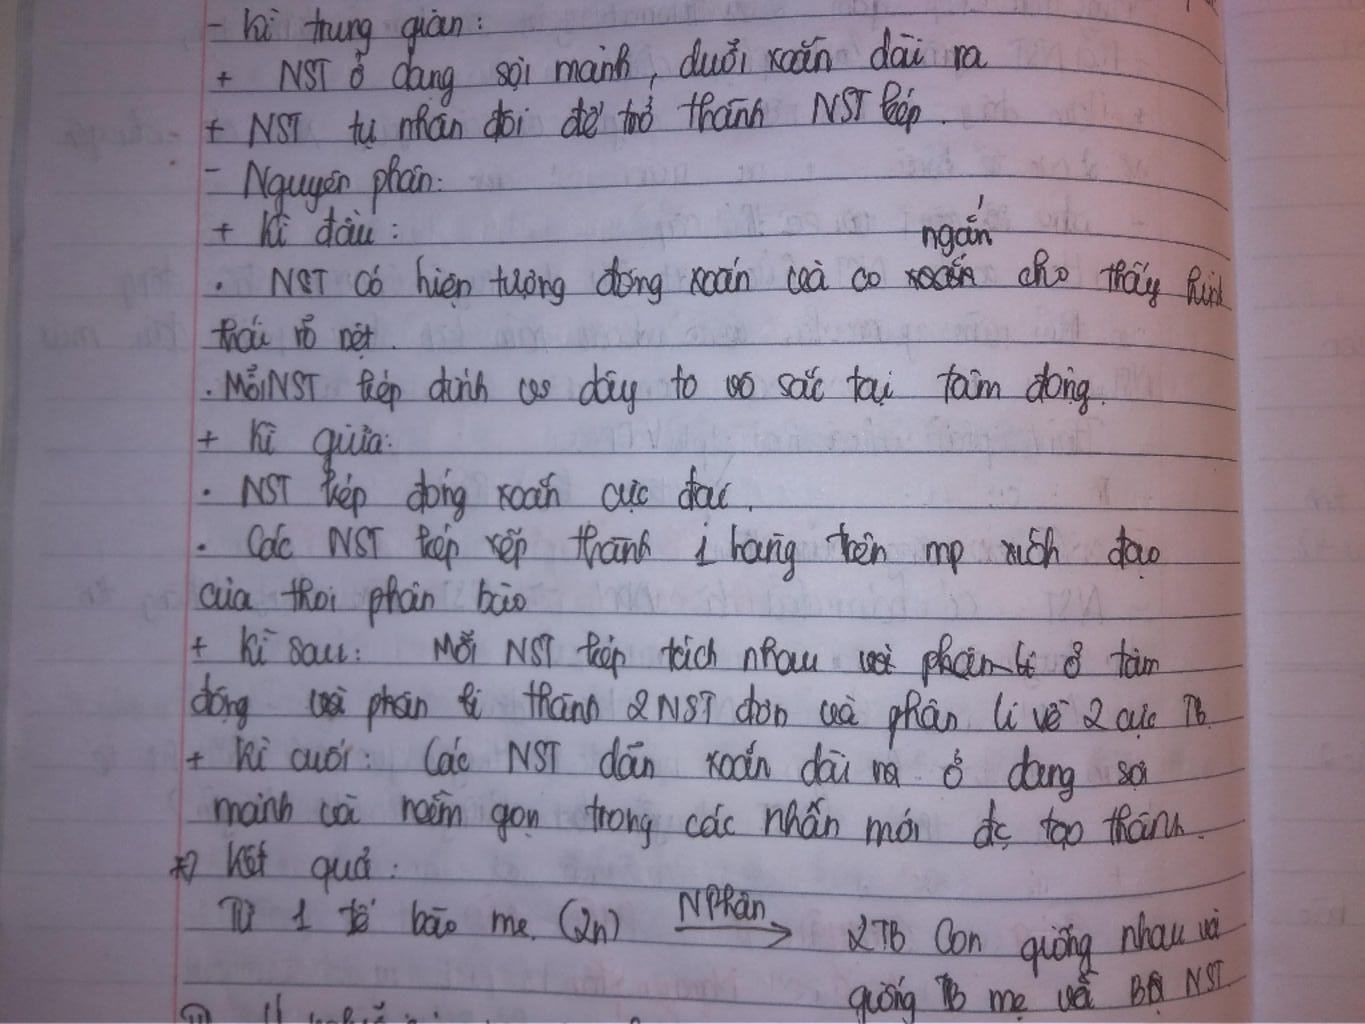 - Kì trung gian:
+ NST ở dạng sợi mảnh, duỗi xoắn dài ra
+ NST tự nhân đôi để trở thành NST kép.
- Nguyên phân:
+ Kì đầu:
ngắn
. NST có hiện tượng đóng xoắn và co cho thấy hình
thái rõ nét.
. Mỗi NST kép dính vs dây tơ vô sắc tại tâm động.
+ Kì giữa:
. NST kép đóng xoắn cực đại.
. Các NST kép xếp thành 1 hàng trên mp xích đạo
của thoi phân bào
+ Kì sau: Mỗi NST kép tách nhau và phân li ở tâm
động và phân li thành 2 NST đơn và phân li về 2 cực TB
+ Kì cuối: Các NST dãn xoắn dài ra ở dạng sợi
mảnh và nằm gọn trong các nhân mới đc tạo thành.
*) Kết quả:
NPhân
Từ 1 tế bào mẹ (2n) → 2TB Con giống nhau và
giống TB mẹ về Bộ NST